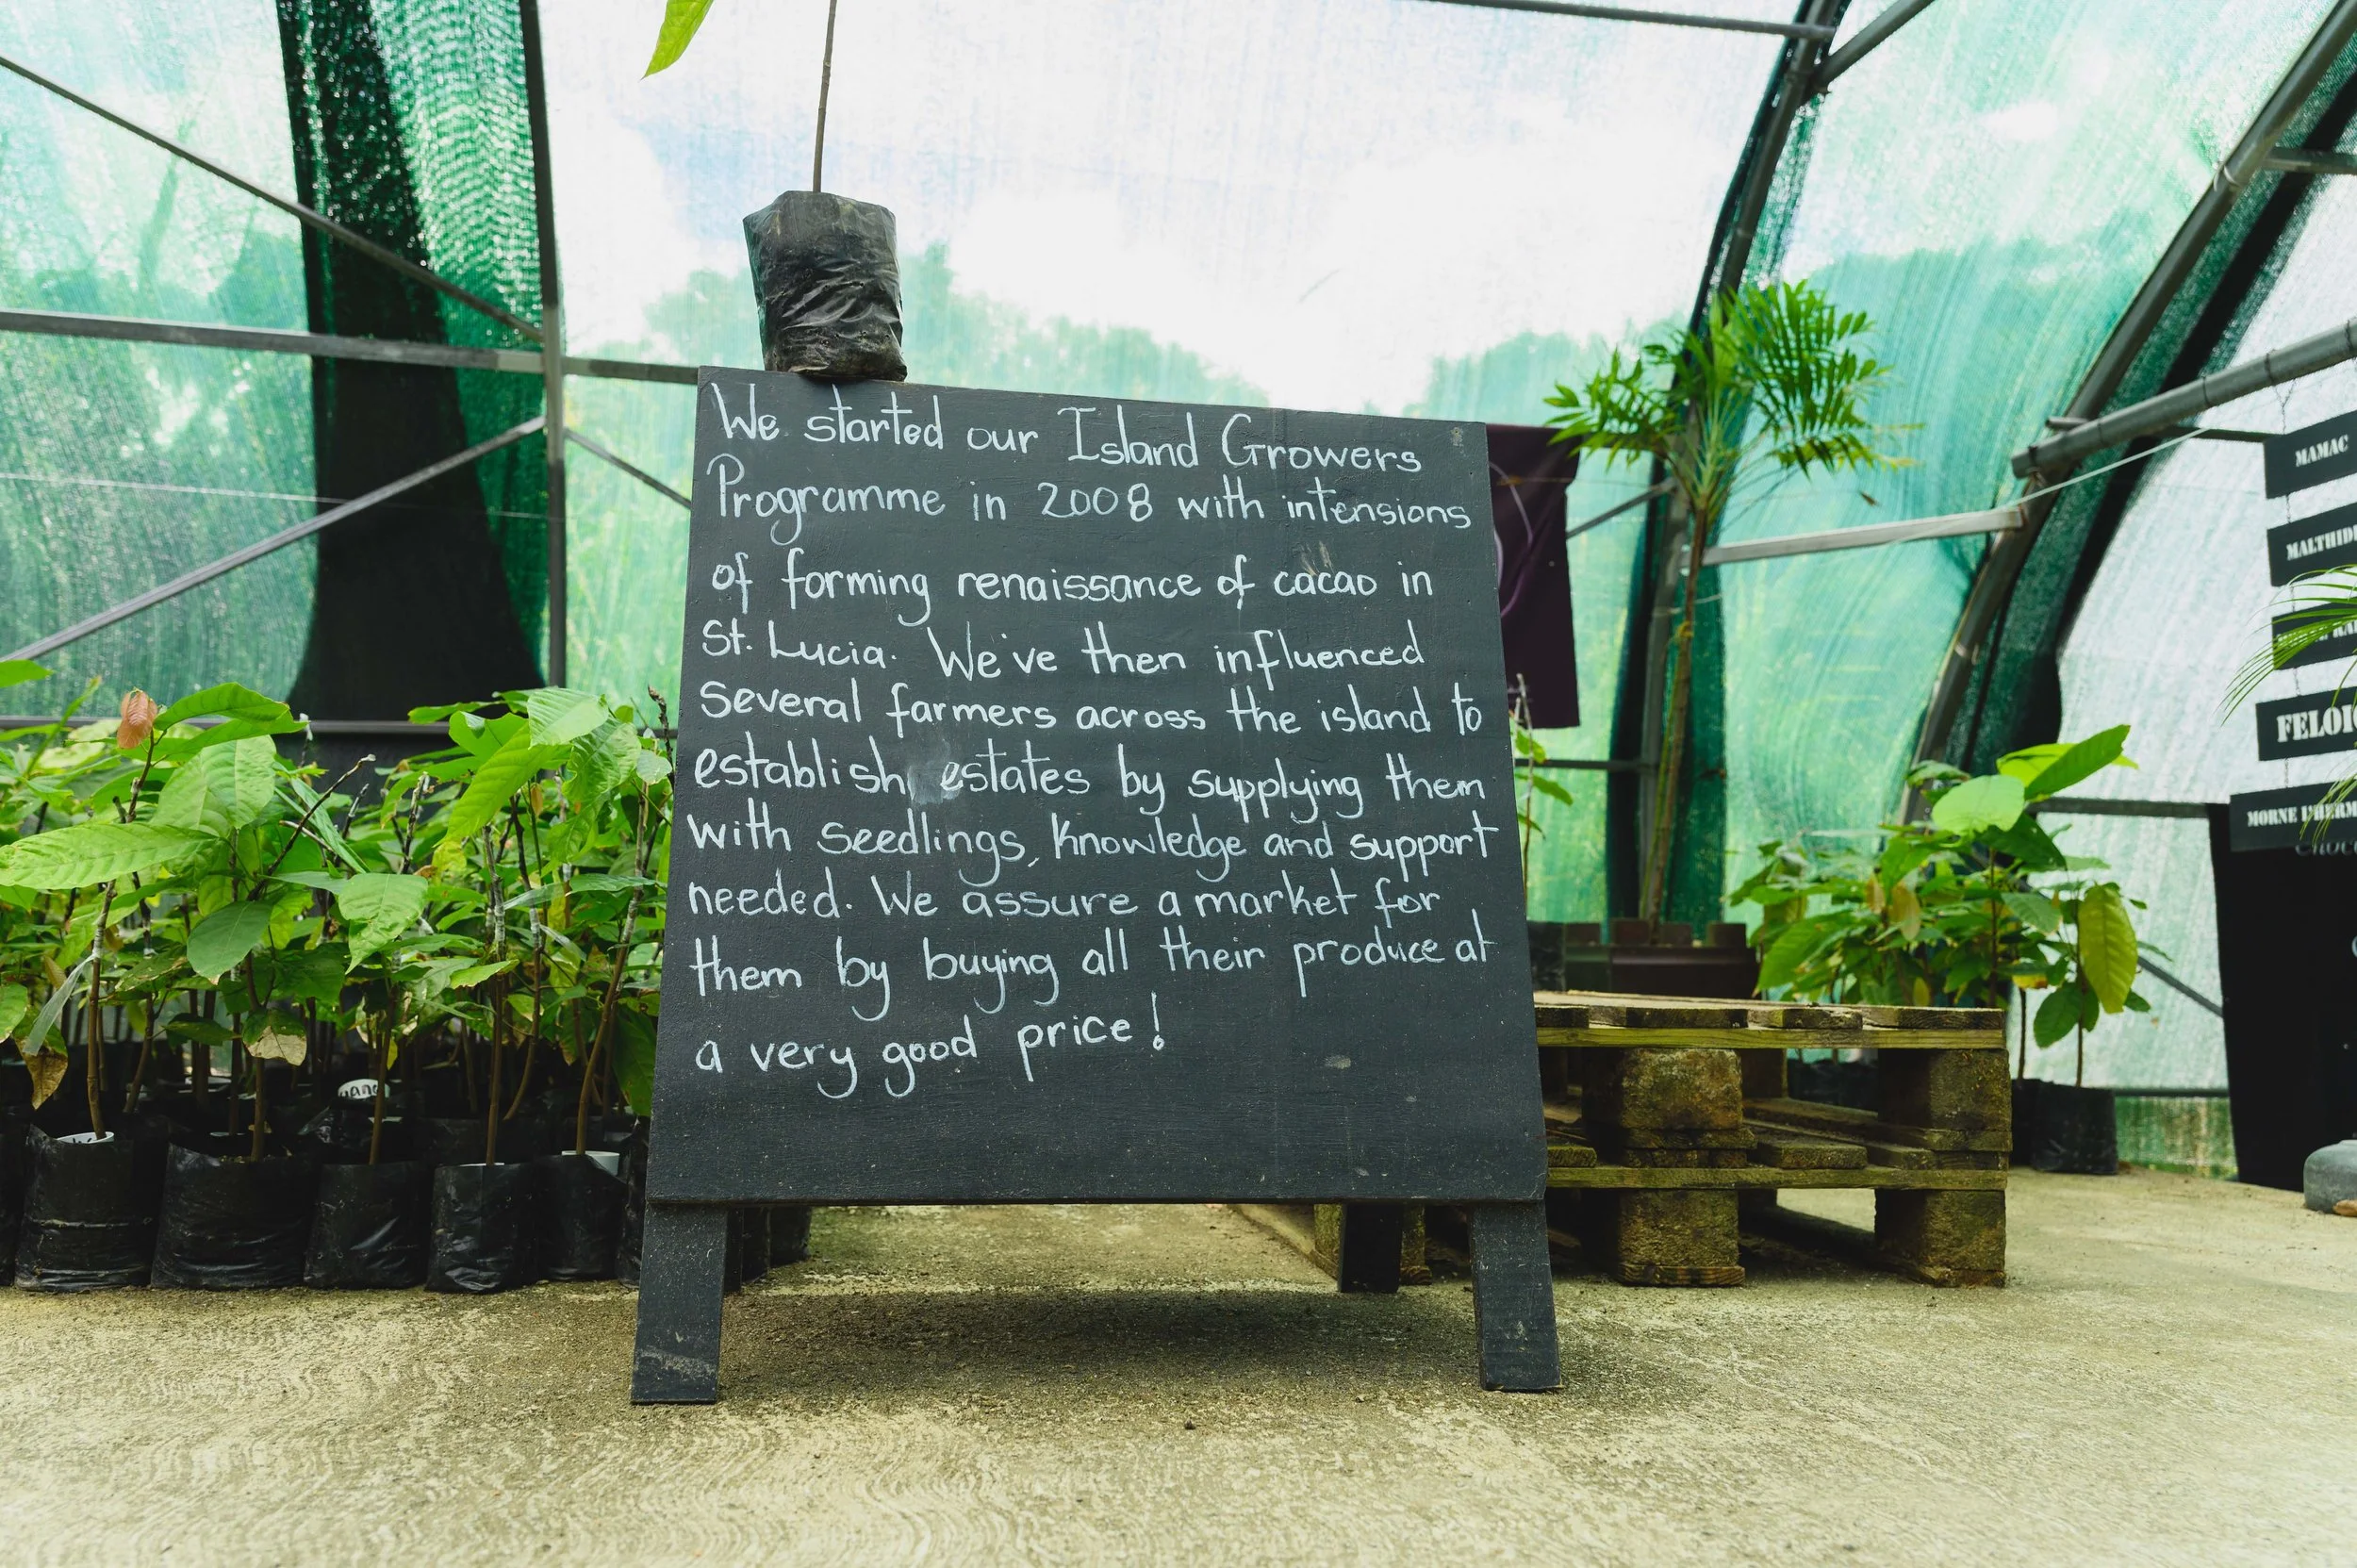 We started our Island Growers
Programme in 2008 with intensions
of forming renaissance of cacao in
St. Lucia. We've then influenced
several farmers across the island to
establish estates by supplying them
with seedlings, knowledge and support
needed. We assure a market for
them by buying all their produce at
a very good price!
MAMAC